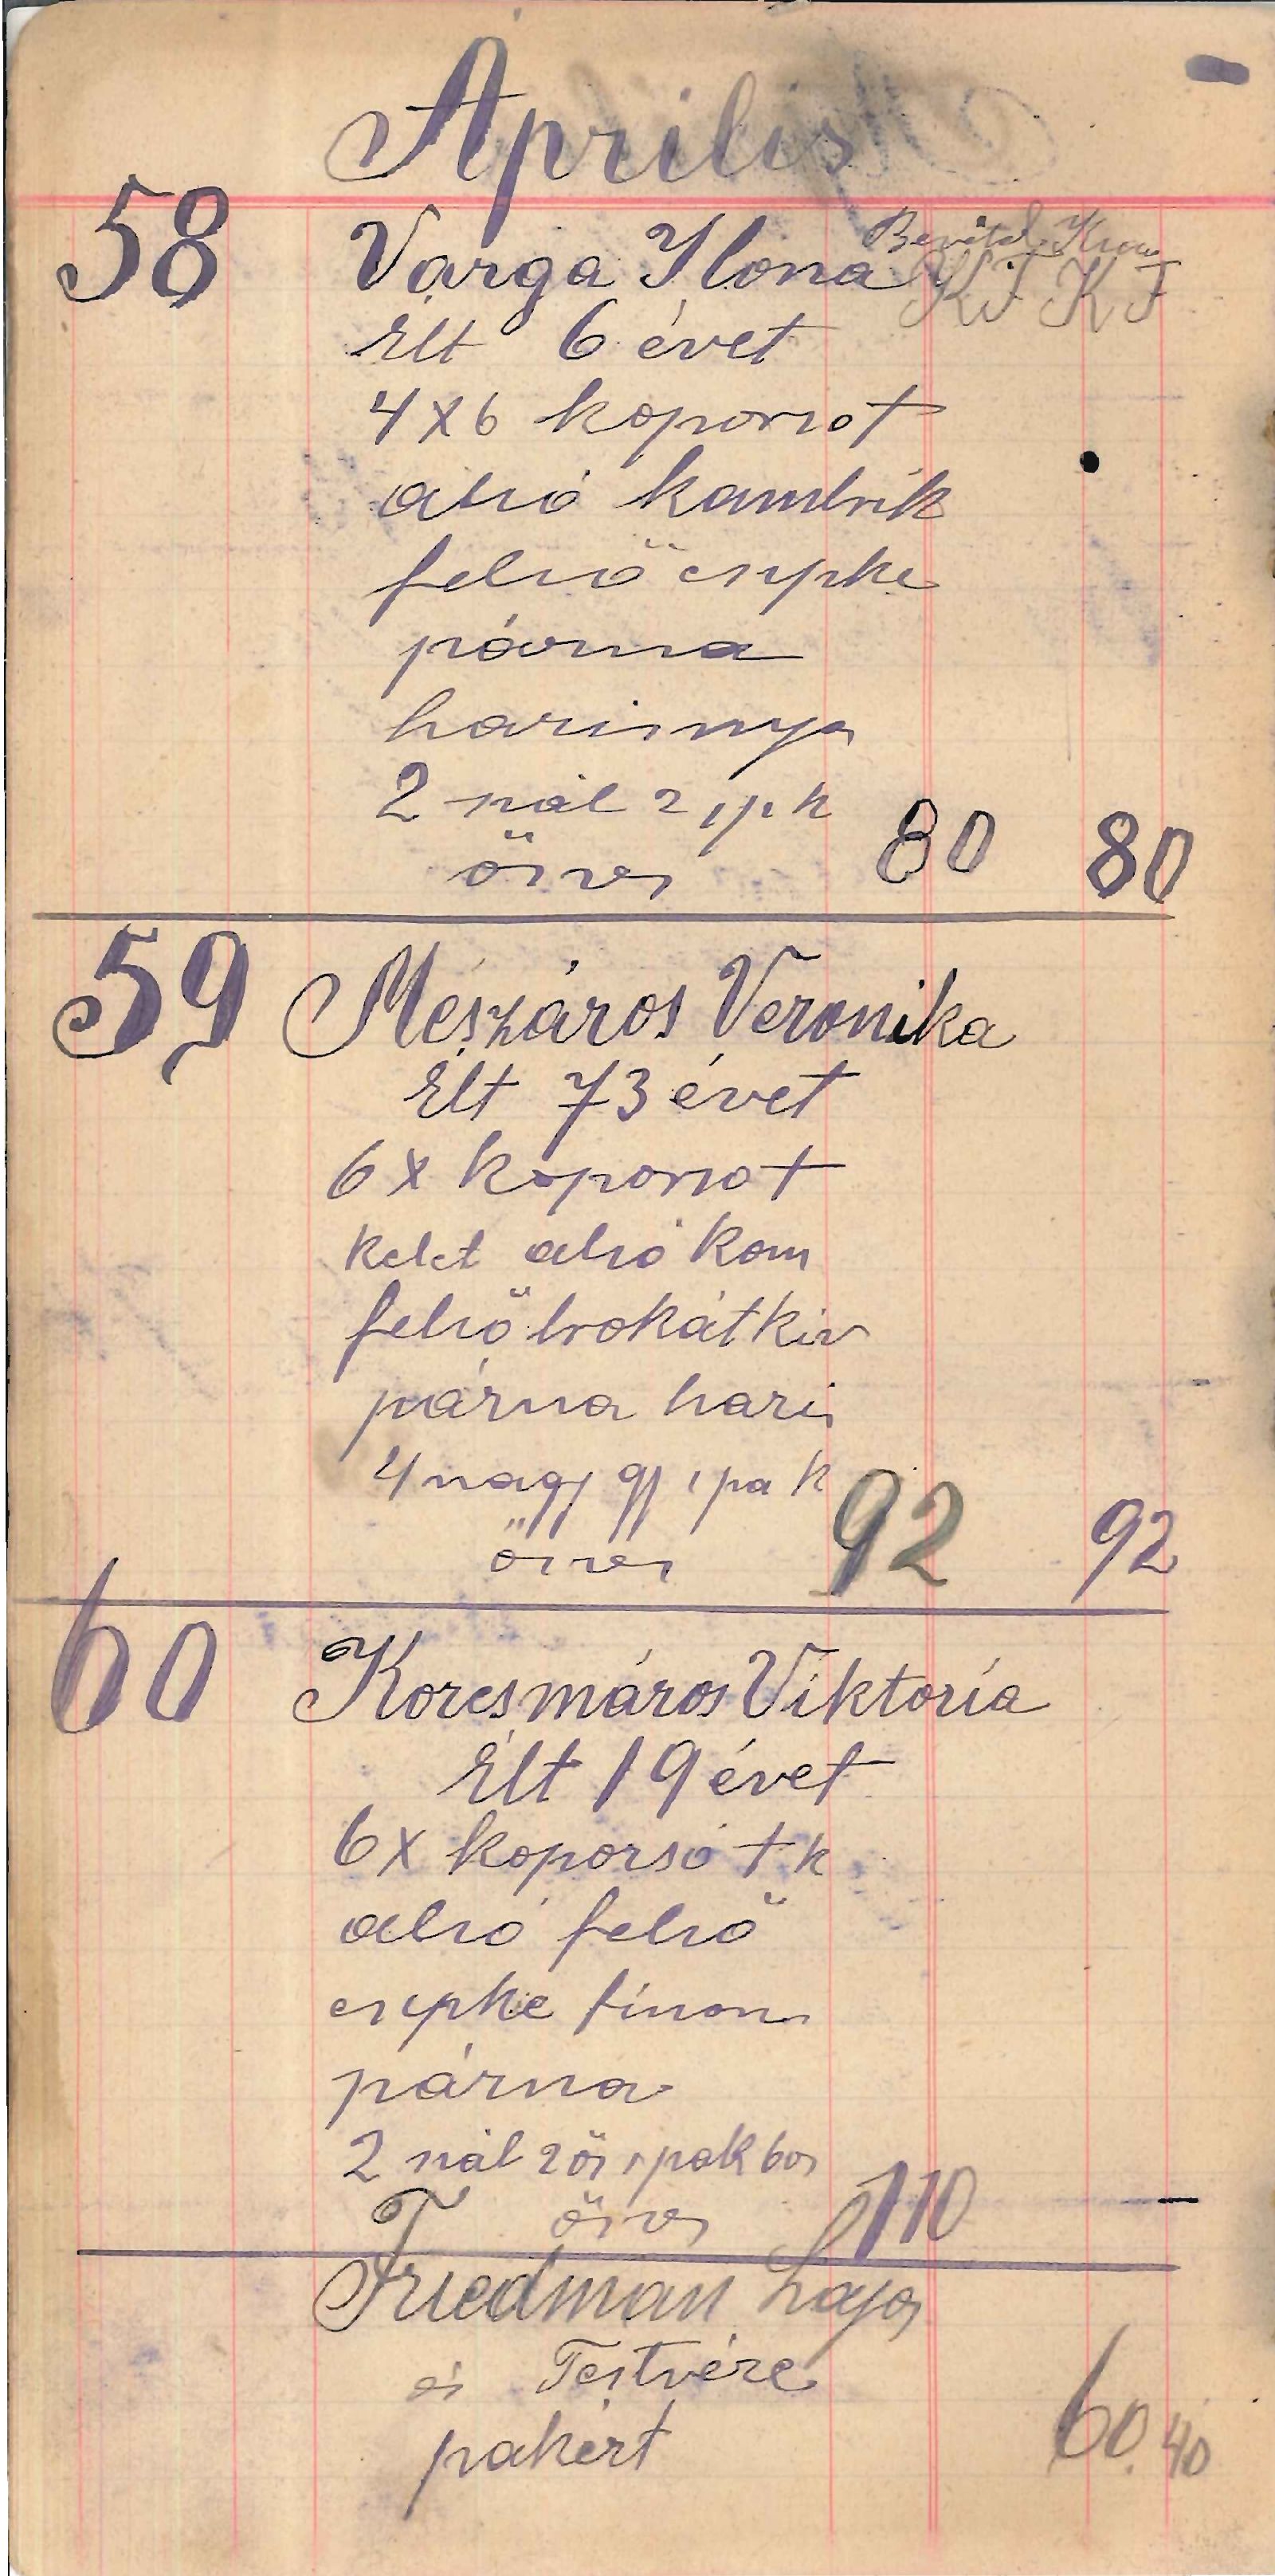 Aprilis
58 Varga Ilona
K F K F
Élt 6 évet
4x6 koporsot
alsó kambrik
felső csipke
párna
harisnya
2 szál
össves 80 80
59 Mészáros Veronika
Élt 73 évet
6x koporsot
kelet alsó kom
felső brokát kiv
párna haris
4 nagy gy spa k
össves 92 92
60 Korcsmáros Viktoria
Élt 19 évet
6x koporsó t k
alsó felső
csipke finom
párna
2 szál
össves 110 —
Friedman Lajos
és Testvére
pakért 60.40